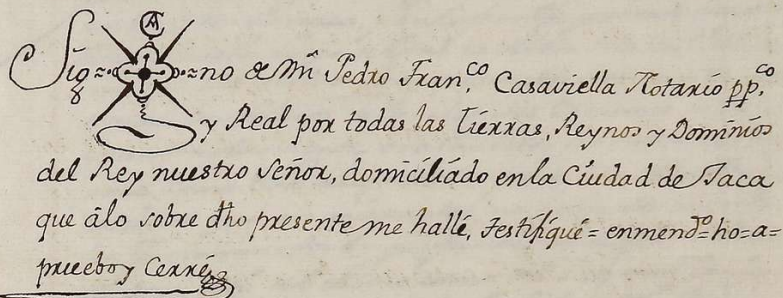 Sig=no de Mi Pedro Fran.co Casaviella Notario pp.co
y Real por todas las Tierras, Reynos y Dominios
del Rey nuestro Señor, domiciliado en la Ciudad de Jaca
que âlo sobre dho presente me hallé, testifiqué = enmendo=ho=a=
pruebo y Cerré